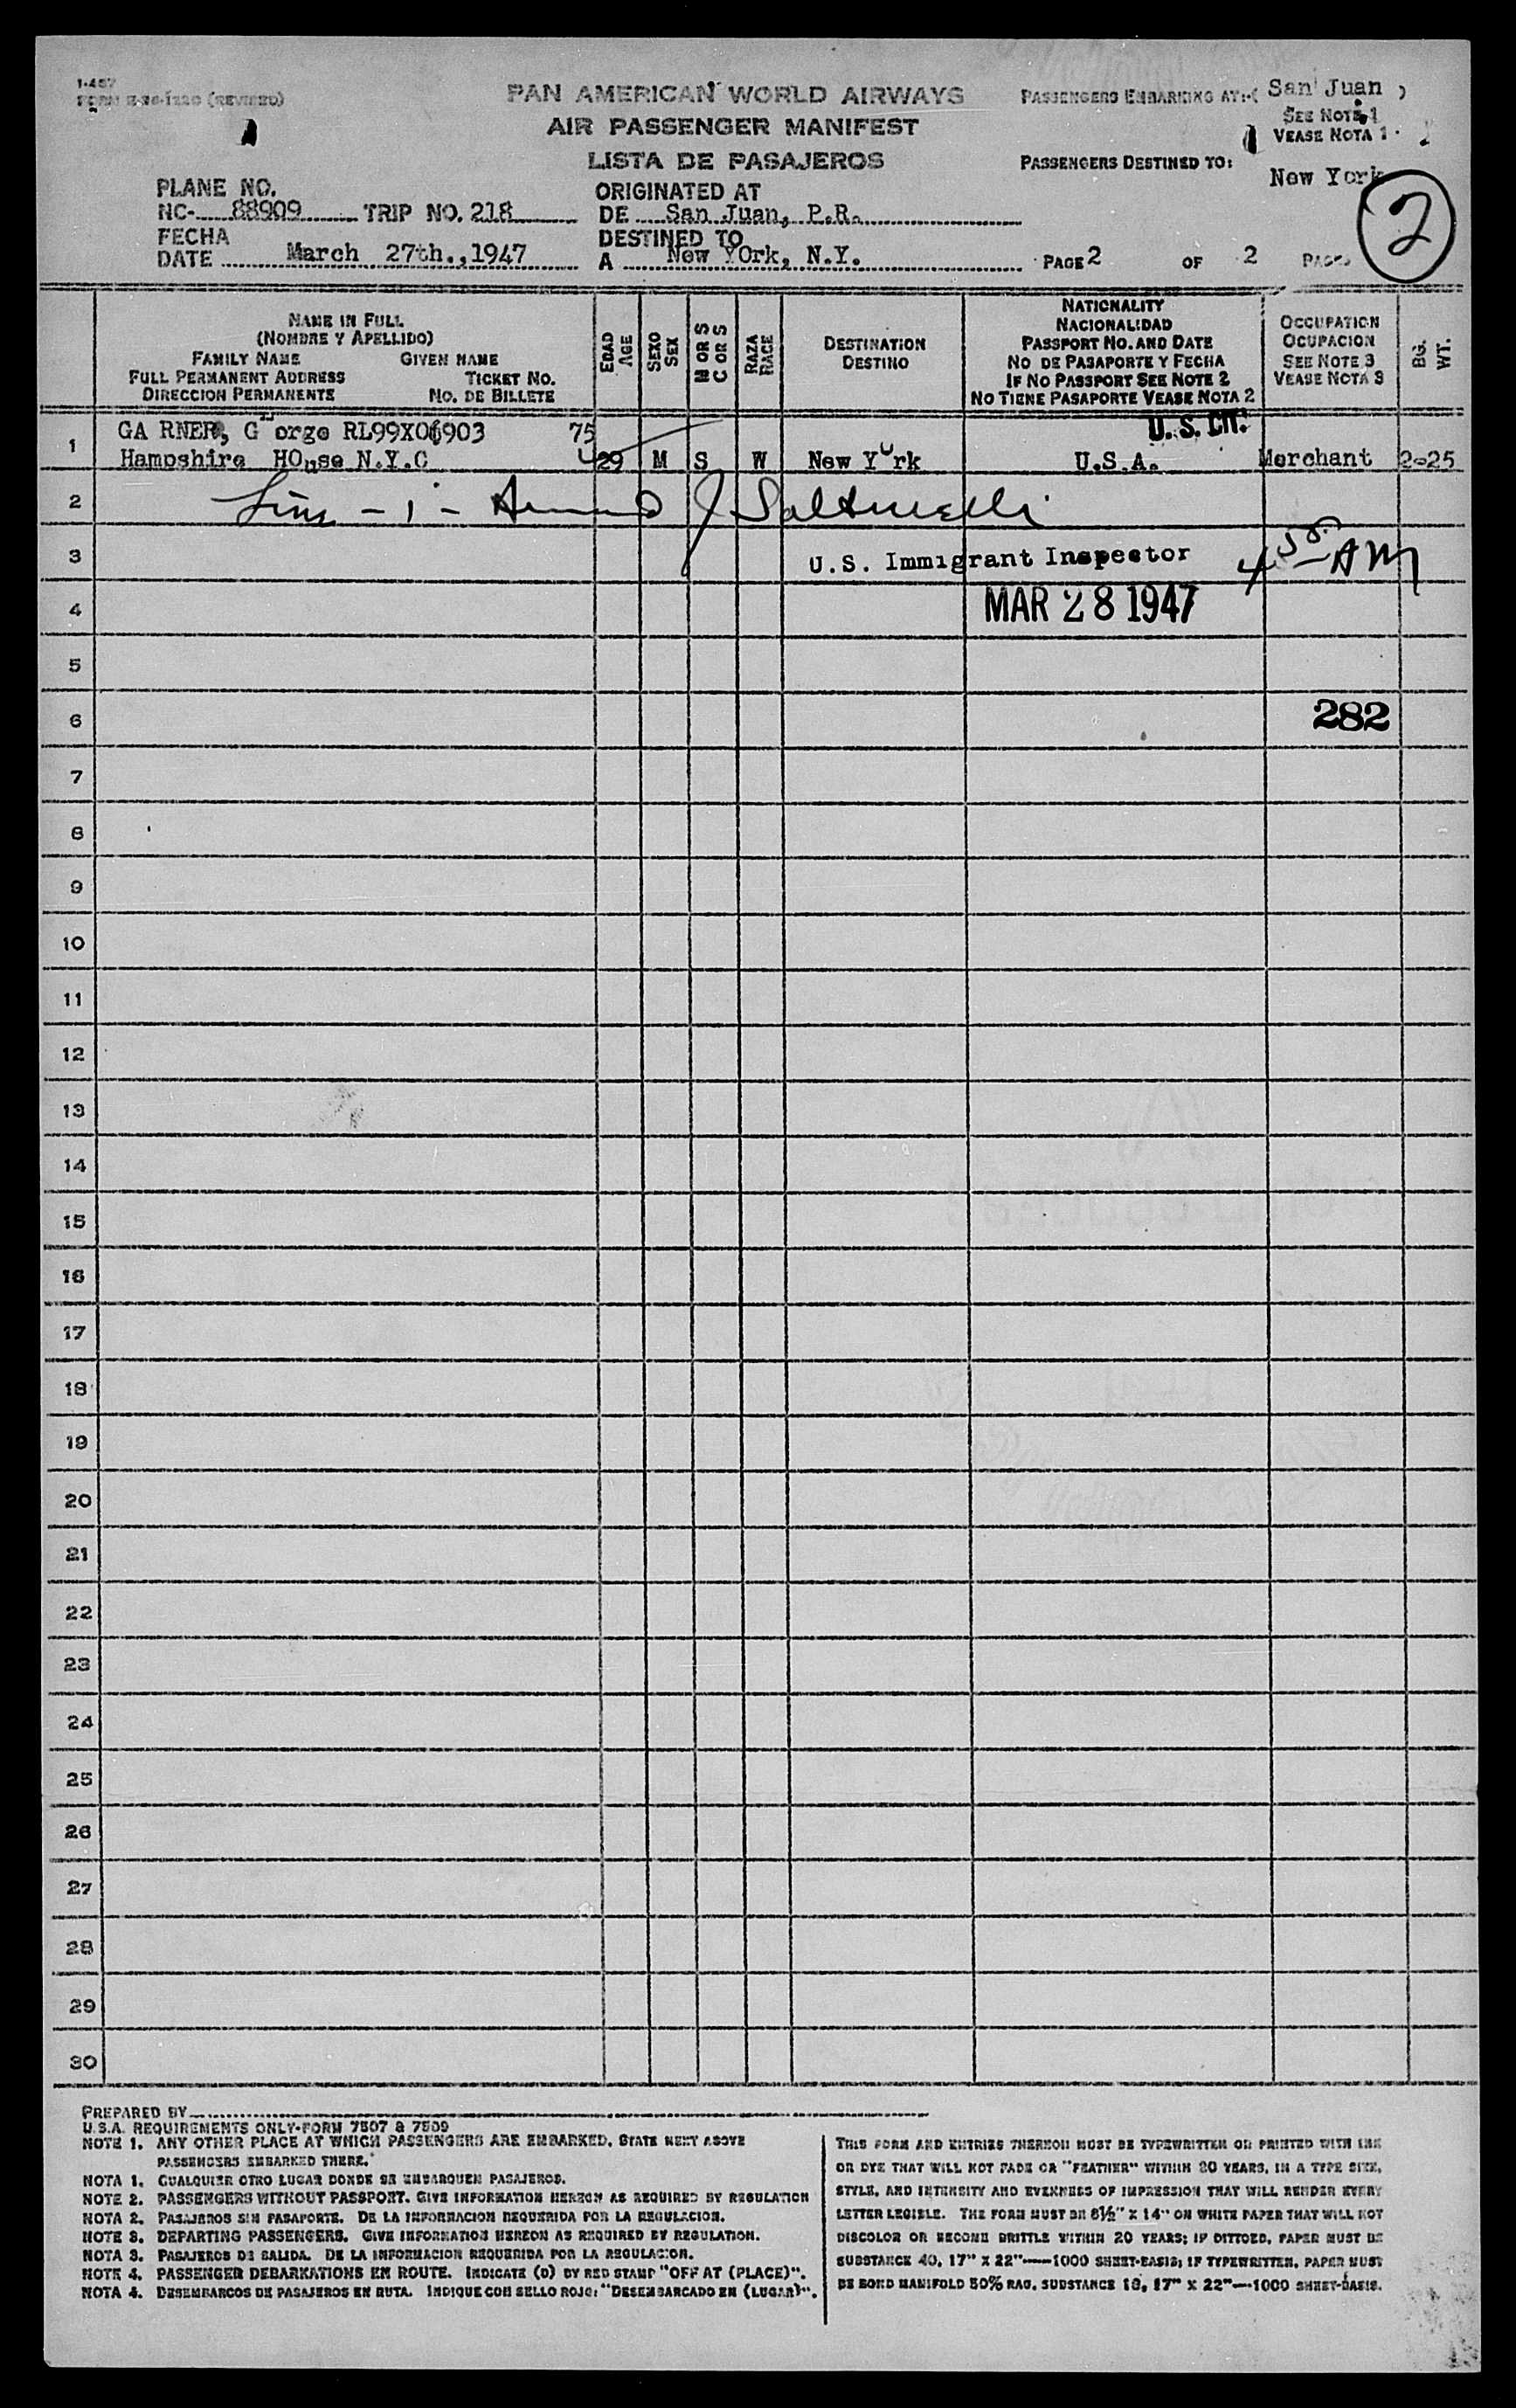 1-487
FORM E-36-1220 (REVISED)
PAN AMERICAN WORLD AIRWAYS
AIR PASSENGER MANIFEST
LISTA DE PASAJEROS
PASSENGERS EMBARKING AT:-( San Juan )
SEE NOTE 1
VEASE NOTA 1
PASSENGERS DESTINED TO:
New York
2
PLANE NO.
NC- 88909 TRIP NO. 218
ORIGINATED AT
DE San Juan, P.R.
FECHA
DATE March 27th.,1947
DESTINED TO
A New YOrk, N.Y.
PAGE 2 OF 2 PAGES
NAME IN FULL
(NOMBRE Y APELLIDO)
FAMILY NAME GIVEN NAME
FULL PERMANENT ADDRESS TICKET NO.
DIRECCION PERMANENTE NO. DE BILLETE
EDAD
AGE
SEXO
SEX
M OR S
C OR S
RAZA
RACE
DESTINATION
DESTINO
NATIONALITY
NACIONALIDAD
PASSPORT NO. AND DATE
NO DE PASAPORTE Y FECHA
IF NO PASSPORT SEE NOTE 2
NO TIENE PASAPORTE VEASE NOTA 2
OCCUPATION
OCUPACION
SEE NOTE 3
VEASE NOTA 3
BG.
WT.
GA RNER, George RL99X06903 75 U.S. CIT.
1 Hampshire HOuse N.Y.C 29 M S W New York U.S.A. Merchant 2-25
2 Line - 1 -
3 U.S. Immigrant Inspector 4 50 AM
4 MAR 28 1947
5
6 282
7
8
9
10
11
12
13
14
15
16
17
18
19
20
21
22
23
24
25
26
27
28
29
30
PREPARED BY
U.S.A. REQUIREMENTS ONLY-FORM 7507 & 7509
NOTE 1. ANY OTHER PLACE AT WHICH PASSENGERS ARE EMBARKED, STATE NEXT ABOVE
PASSENGERS EMBARKED THERE.
NOTA 1. CUALQUIER OTRO LUGAR DONDE SE EMBARQUEN PASAJEROS.
NOTE 2. PASSENGERS WITHOUT PASSPORT. GIVE INFORMATION HEREON AS REQUIRED BY REGULATION
NOTA 2. PASAJEROS SIN PASAPORTE. DE LA INFORMACION REQUERIDA POR LA REGULACION.
NOTE 3. DEPARTING PASSENGERS. GIVE INFORMATION HEREON AS REQUIRED BY REGULATION.
NOTA 3. PASAJEROS DE SALIDA. DE LA INFORMACION REQUERIDA POR LA REGULACION.
NOTE 4. PASSENGER DEBARKATIONS EN ROUTE. INDICATE (D) BY RED STAMP "OFF AT (PLACE)".
NOTA 4. DESEMBARCOS DE PASAJEROS EN RUTA. INDIQUE CON SELLO ROJO: "DESEMBARCADO EN (LUGAR)".
THIS FORM AND ENTRIES THEREON MUST BE TYPEWRITTEN OR PRINTED WITH INK
OR DYE THAT WILL NOT FADE OR "FEATHER" WITHIN 20 YEARS, IN A TYPE SIZE,
STYLE, AND INTENSITY AND EVENNESS OF IMPRESSION THAT WILL RENDER EVERY
LETTER LEGIBLE. THE FORM MUST BE 8½" X 14" ON WHITE PAPER THAT WILL NOT
DISCOLOR OR BECOME BRITTLE WITHIN 20 YEARS; IF DITTOED, PAPER MUST BE
SUBSTANCE 40, 17" X 22"—1000 SHEET-BASIS; IF TYPEWRITTEN, PAPER MUST
BE BOND MANIFOLD 50% RAG, SUBSTANCE 18, 17" X 22"—1000 SHEET-BASIS.